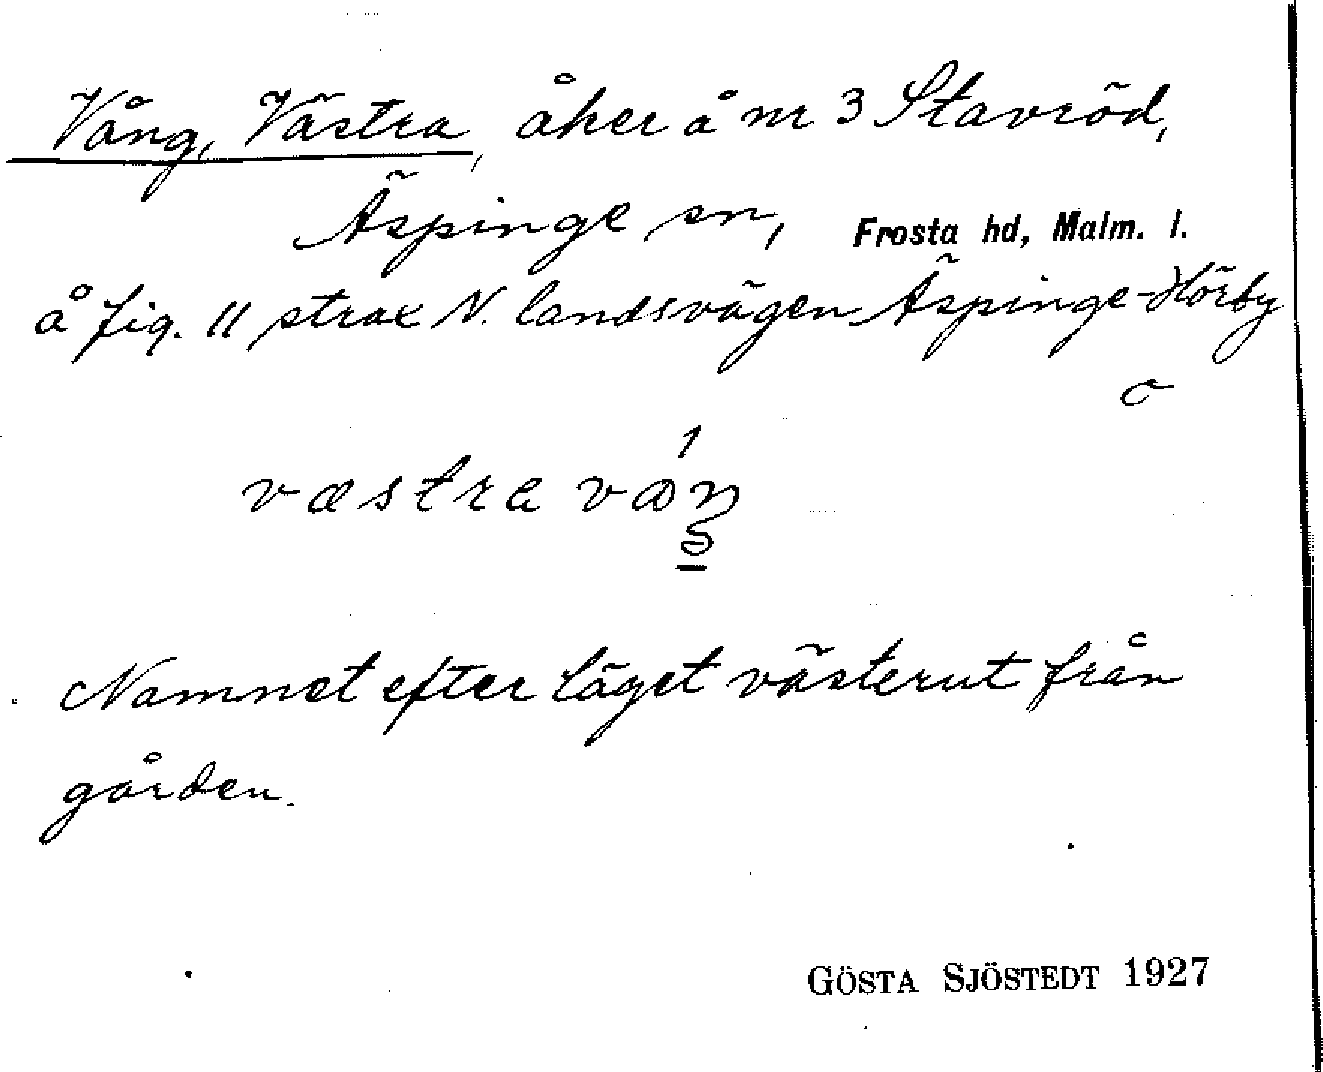 Vång, Västra, åker å nr 3 Stavröd,
Äspinge sn, Frosta hd, Malm. l.
å fig. 11 strax N. landsvägen Äspinge-Hörby
væstra
Namnet efter läget västerut från
gården.
GÖSTA SJÖSTEDT 1927